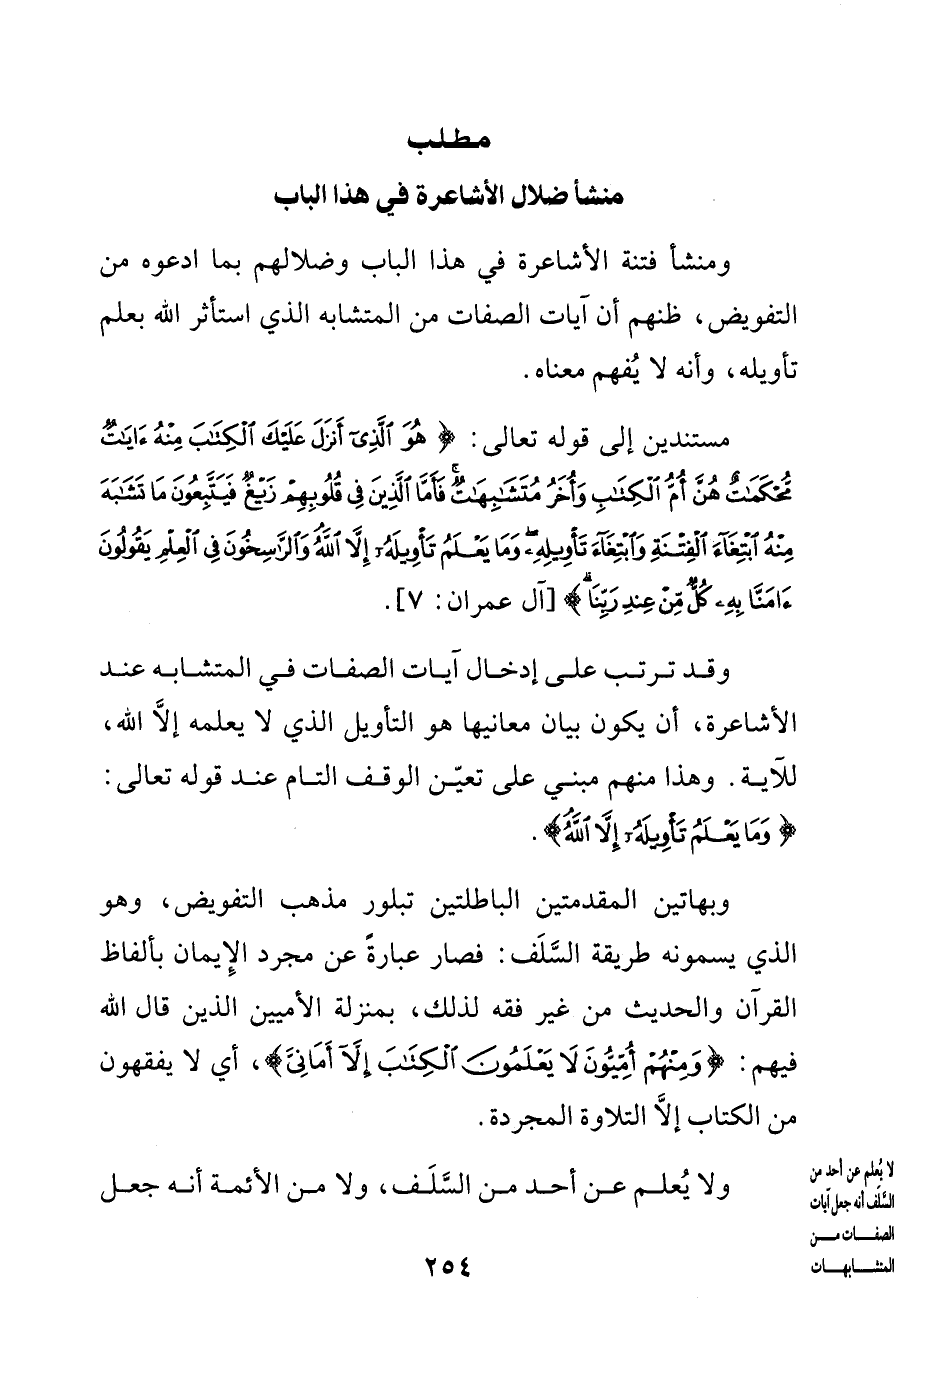 مطلب
منشأ ضلال الأشاعرة في هذا الباب
ومنشأ فتنة الأشاعرة في هذا الباب وضلالهم بما ادعوه من
التفويض، ظنهم أن آيات الصفات من المتشابه الذي استأثر الله بعلم
تأويله، وأنه لا يُفهم معناه.
مستندين إلى قوله تعالى: ﴿ هُوَ ٱلَّذِىٓ أَنزَلَ عَلَيْكَ ٱلْكِتَٰبَ مِنْهُ ءَايَٰتٌ
مُّحْكَمَٰتٌ هُنَّ أُمُّ ٱلْكِتَٰبِ وَأُخَرُ مُتَشَٰبِهَٰتٌ ۖ فَأَمَّا ٱلَّذِينَ فِى قُلُوبِهِمْ زَيْغٌ فَيَتَّبِعُونَ مَا تَشَٰبَهَ
مِنْهُ ٱبْتِغَآءَ ٱلْفِتْنَةِ وَٱبْتِغَآءَ تَأْوِيلِهِۦ ۗ وَمَا يَعْلَمُ تَأْوِيلَهُۥٓ إِلَّا ٱللَّهُ وَٱلرَّٰسِخُونَ فِى ٱلْعِلْمِ يَقُولُونَ
ءَامَنَّا بِهِۦ كُلٌّ مِّنْ عِندِ رَبِّنَا ۗ ﴾ [آل عمران: ٧].
وقد ترتب على إدخال آيات الصفات في المتشابه عند
الأشاعرة، أن يكون بيان معانيها هو التأويل الذي لا يعلمه إلَّا الله،
للآية. وهذا منهم مبني على تعيّن الوقف التام عند قوله تعالى:
﴿ وَمَا يَعْلَمُ تَأْوِيلَهُۥٓ إِلَّا ٱللَّهُ﴾.
وبهاتين المقدمتين الباطلتين تبلور مذهب التفويض، وهو
الذي يسمونه طريقة السَّلَف: فصار عبارةً عن مجرد الإيمان بألفاظ
القرآن والحديث من غير فقه لذلك، بمنزلة الأميين الذين قال الله
فيهم: ﴿وَمِنْهُمْ أُمِّيُّونَ لَا يَعْلَمُونَ ٱلْكِتَٰبَ إِلَّآ أَمَانِىَّ﴾، أي لا يفقهون
من الكتاب إلَّا التلاوة المجردة.
ولا يُعلم عن أحد من السَّلَف، ولا من الأئمة أنه جعل
لا يُعلم عن أحد من
السَّلَف أنه جعل آيات
الصفات من
المتشابهات
٢٥٤